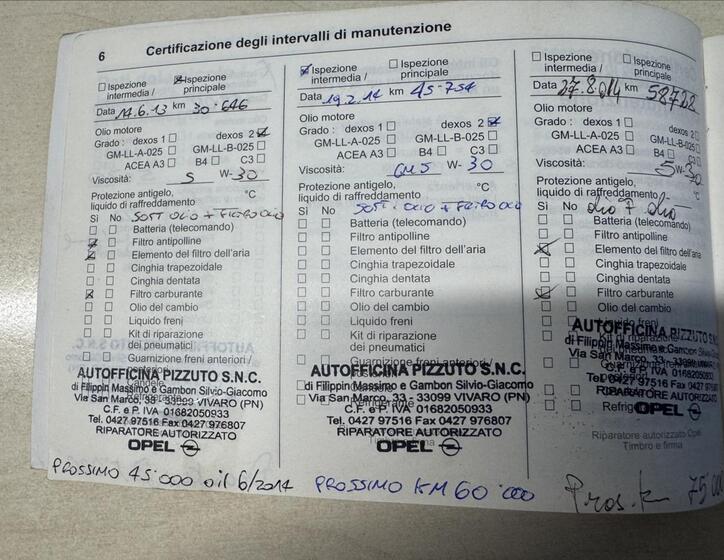 6 Certificazione degli intervalli di manutenzione
Ispezione intermedia / Ispezione principale
Data 14.6.13 km 30.646
Olio motore
Grado : dexos 1 dexos 2
GM-LL-A-025 GM-LL-B-025
ACEA A3 B4 C3
Viscosità: 5 W-30
Protezione antigelo, °C
liquido di raffreddamento
Sì No SOST OLIO + FILTRO OLIO
Batteria (telecomando)
Filtro antipolline
Elemento del filtro dell'aria
Cinghia trapezoidale
Cinghia dentata
Filtro carburante
Olio del cambio
Liquido freni
Kit di riparazione
dei pneumatici
Guarnizione freni anteriori /
AUTOFFICINA PIZZUTO S.N.C.
di Filippin Massimo e Gambon Silvio-Giacomo
Via San Marco, 33 - 33099 VIVARO (PN)
C.F. e P. IVA 01682050933
Tel. 0427 97516 Fax 0427 976807
RIPARATORE AUTORIZZATO
OPEL
PROSSIMO 45'000 o il 6/2014
Ispezione intermedia / Ispezione principale
Data 19.2.14 km 45.754
Olio motore
Grado : dexos 1 dexos 2
GM-LL-A-025 GM-LL-B-025
ACEA A3 B4 C3
Viscosità: W-30
Protezione antigelo, °C
liquido di raffreddamento
Sì No SOST. OLIO + FILTRO OLIO
Batteria (telecomando)
Filtro antipolline
Elemento del filtro dell'aria
Cinghia trapezoidale
Cinghia dentata
Filtro carburante
Olio del cambio
Liquido freni
Kit di riparazione
dei pneumatici
Guarnizione freni anteriori /
AUTOFFICINA PIZZUTO S.N.C.
di Filippin Massimo e Gambon Silvio-Giacomo
Via San Marco, 33 - 33099 VIVARO (PN)
C.F. e P. IVA 01682050933
Tel. 0427 97516 Fax 0427 976807
RIPARATORE AUTORIZZATO
OPEL
PROSSIMO KM 60'000
Ispezione intermedia / Ispezione principale
Data 27.8.014 km
Olio motore
Grado : dexos 1 dexos 2
GM-LL-A-025 GM-LL-B-025
ACEA A3 B4 C3
Viscosità: 5 W-30
Protezione antigelo, °C
liquido di raffreddamento
Sì No
Batteria (telecomando)
Filtro antipolline
Elemento del filtro dell'aria
Cinghia trapezoidale
Cinghia dentata
Filtro carburante
Olio del cambio
Liquido freni
AUTOFFICINA PIZZUTO S.N.C.
di Filippin Massimo e Gambon Silvio-Giacomo
Via San Marco, 33 - 33099 VIVARO (PN)
C.F. e P. IVA
Tel. 0427 97516 Fax 0427
OPEL
Riparatore autorizzato Opel
Timbro e firma
Pros. km 75'000